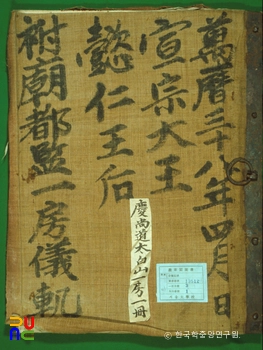 萬曆三十八年四月 日
宣宗大王
懿仁王后
祔廟都監一房儀軌
慶尚道太白山上一房一冊
ⓒ 한국학중앙연구원.